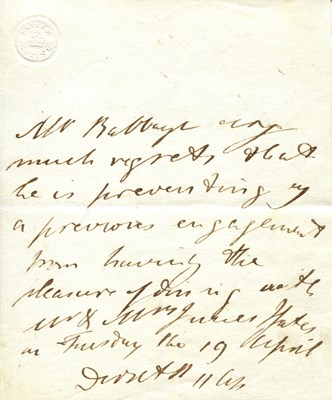 Mr Babbage very
much regrets that
he is preventing by
a previous engagement
from having the
pleasure of dining with
Mr & Mrs James Yates
on Tuesday the 19 April
Dorset St 11 Ap